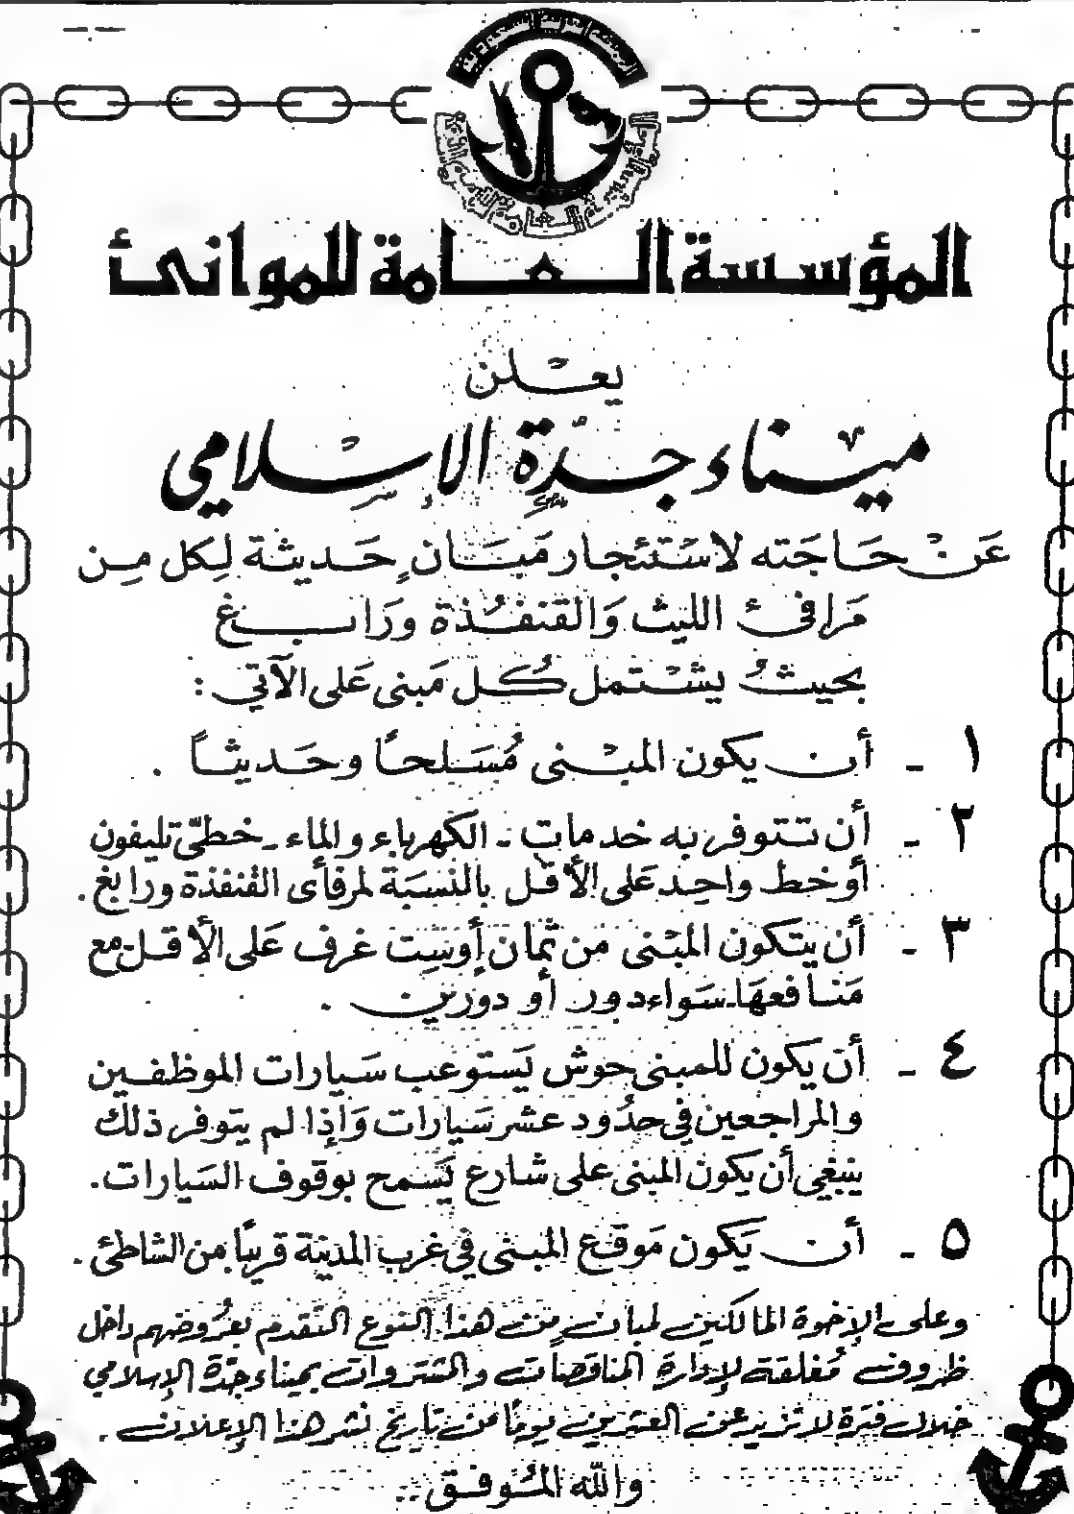 المؤسسة العامة للموانئ
يعلن
ميناء جدة الإسلامي
عن حاجته لاستئجار مبانٍ حديثة لكل من
مرافئ الليث والقنفذة ورابغ
بحيث يشتمل كل مبنى على الآتي :
١ - أن يكون المبنى مُسلحاً وحديثاً .
٢ - أن تتوفر به خدمات - الكهرباء والماء - خطيّ تليفون
أو خط واحد على الأقل بالنسبة لمرفأى القنفذة ورابغ .
٣ - أن يتكون المبنى من ثمان أو ست غرف على الأقل مع
منافعها سواء دور أو دورين .
٤ - أن يكون للمبنى حوش يستوعب سيارات الموظفين
والمراجعين في حدُود عشر سيارات وإذا لم يتوفر ذلك
ينبغي أن يكون المبنى على شارع يسمح بوقوف السيارات .
٥ - أن يكون موقع المبنى في غرب المدينة قريباً من الشاطئ .
وعلى الإخوة المالكين لمبان من هذا النوع التقدم بعروضهم داخل
ظروف مُغلقة لإدارة المناقصات والمشتروات بميناء جدّة الإسلامي
خلال فترة لا تزيد عن العشرين يوماً من تاريخ نشر هذا الإعلان .
والله المُوفق ..